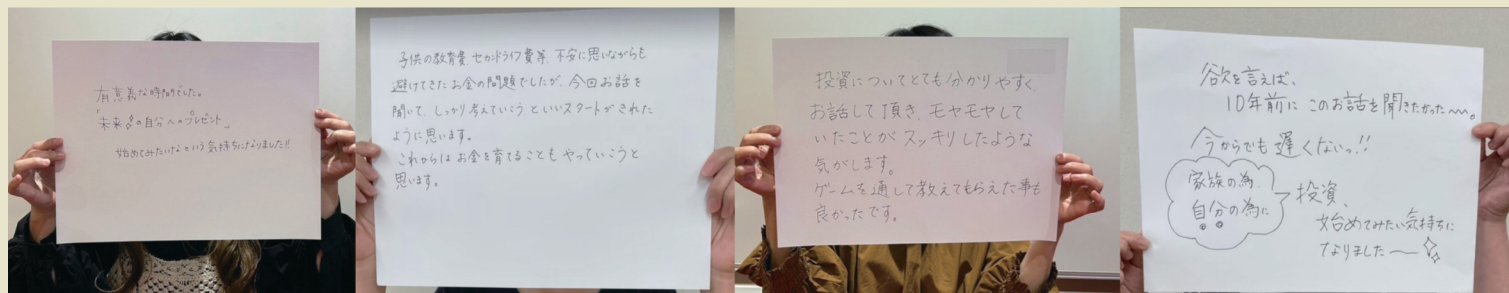 有意義な時間でした。
「未来の自分へのプレゼント」
始めてみたいなという気持ちになりました!!
子供の教育費、セカンドライフ費等、不安に思いながらも
避けてきたお金の問題でしたが、今回お話を
聞いて、しっかり考えていこうといいスタートがきれた
ように思います。
これからはお金を育てることもやっていこうと
思います。
投資についてとても分かりやすく、
お話して頂き、モヤモヤして
いたことがスッキリしたような
気がします。
ゲームを通して教えてもらえた事も
良かったです。
欲を言えば、
10年前にこのお話を聞きたかった〜〜。
今からでも遅くないっ!!
家族の為、
自分の為に
投資、
始めてみたい気持ちに
なりました〜